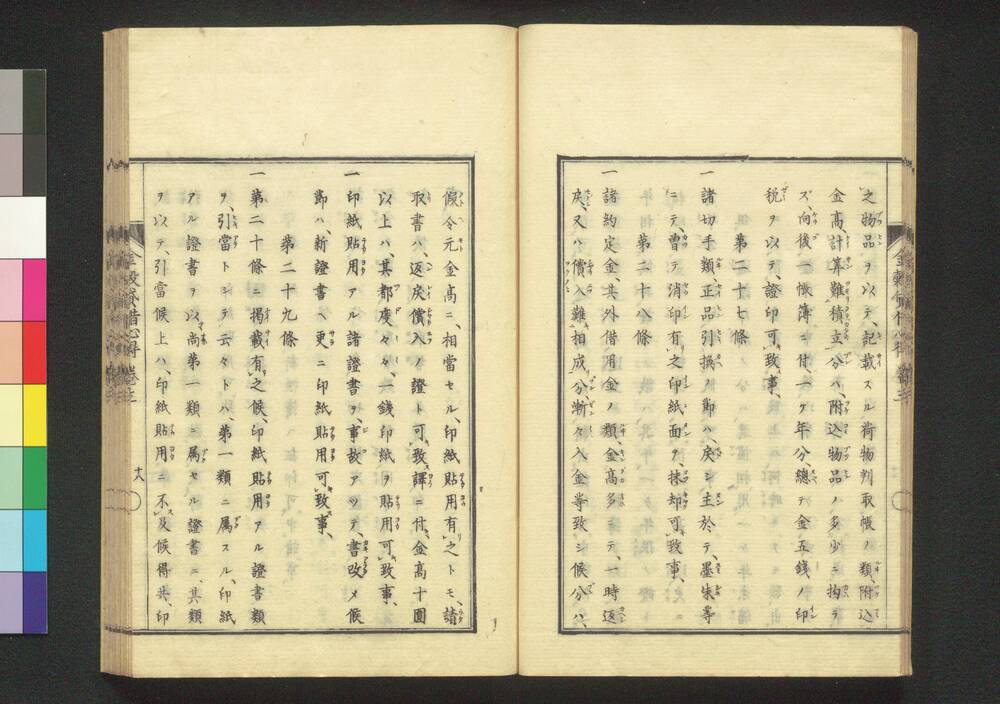 之物品ヲ以テ、記載スル荷物判取帳ノ類、附込
金高、計算難積立分ハ、附込物品ノ多少ニ拘ラ
ズ、向後一帳簿ニ付、一ケ年分、總テ金五錢ノ印
税ヲ以テ、證印可致事、
第二十七條
一 諸切手類正品引換ノ節ハ、戾シ主於テ、墨朱等
ニテ、曾テ消印有之印紙面ヲ、抹却可致事、
第二十八條
一 諸約定金、其外借用金ノ類、金高多シテ、一時返
戾、又ハ、償入難相成分、漸々入金等致シ候分ハ、
假令元金高ニ、相當セル、印紙貼用有之トモ、請
取書ハ、返戾償入ノ證ト可致譯ニ付、金高十圓
以上ハ、其都度々々、一錢印紙ヲ貼用可致事、
一 印紙貼用アル諸證書ヲ、事故アツテ、書改メ候
節ハ、新證書ヘ更ニ印紙貼用可致事、
第二十九條
一 第二十條ニ掲載有之候、印紙貼用アル證書類
ヲ、引當トシテ云々トハ、第一類ニ属スル、印紙
アル證書ヲ以、尚第一類ニ属セル證書ニ、其類
ヲ以テ、引當候上ハ、印紙貼用ニ不及候得共、印
十八